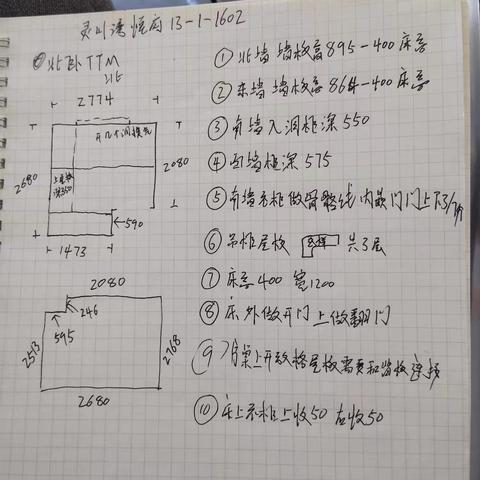 灵川漓悦府 13-1-1602
北卧 TTM
北
2774
2680
2080
590
1473
2080
246
595
2513
2768
2680
① 北墙 墙板高895-400床高
② 东墙 墙板高864-400床高
③ 南墙入洞柜深550
④ 西墙柜深575
⑤ 南墙衣柜做骨骼线 内嵌门门上下3/7分
⑥ 吊柜层板 共3层
⑦ 床高400 宽1200
⑧ 床外做开门 上做翻门
⑨ 书桌上开放格层板需要和背板连接
⑩ 床上吊柜上收50 左收50